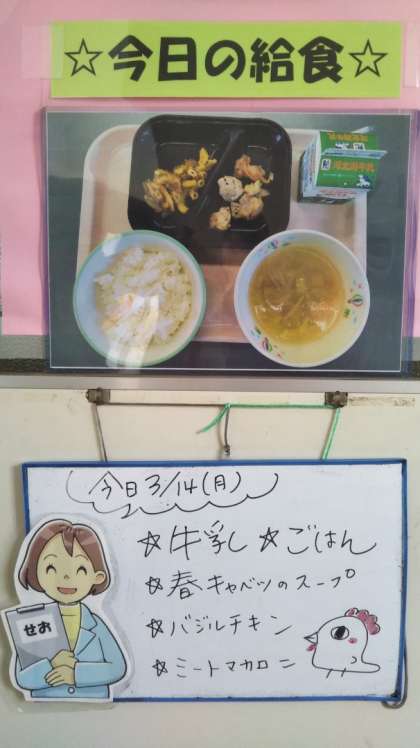 ☆今日の給食☆
今日3/14(月)
☆牛乳 ☆ごはん
☆春キャベツのスープ
☆バジルチキン
☆ミートマカロニ
せお